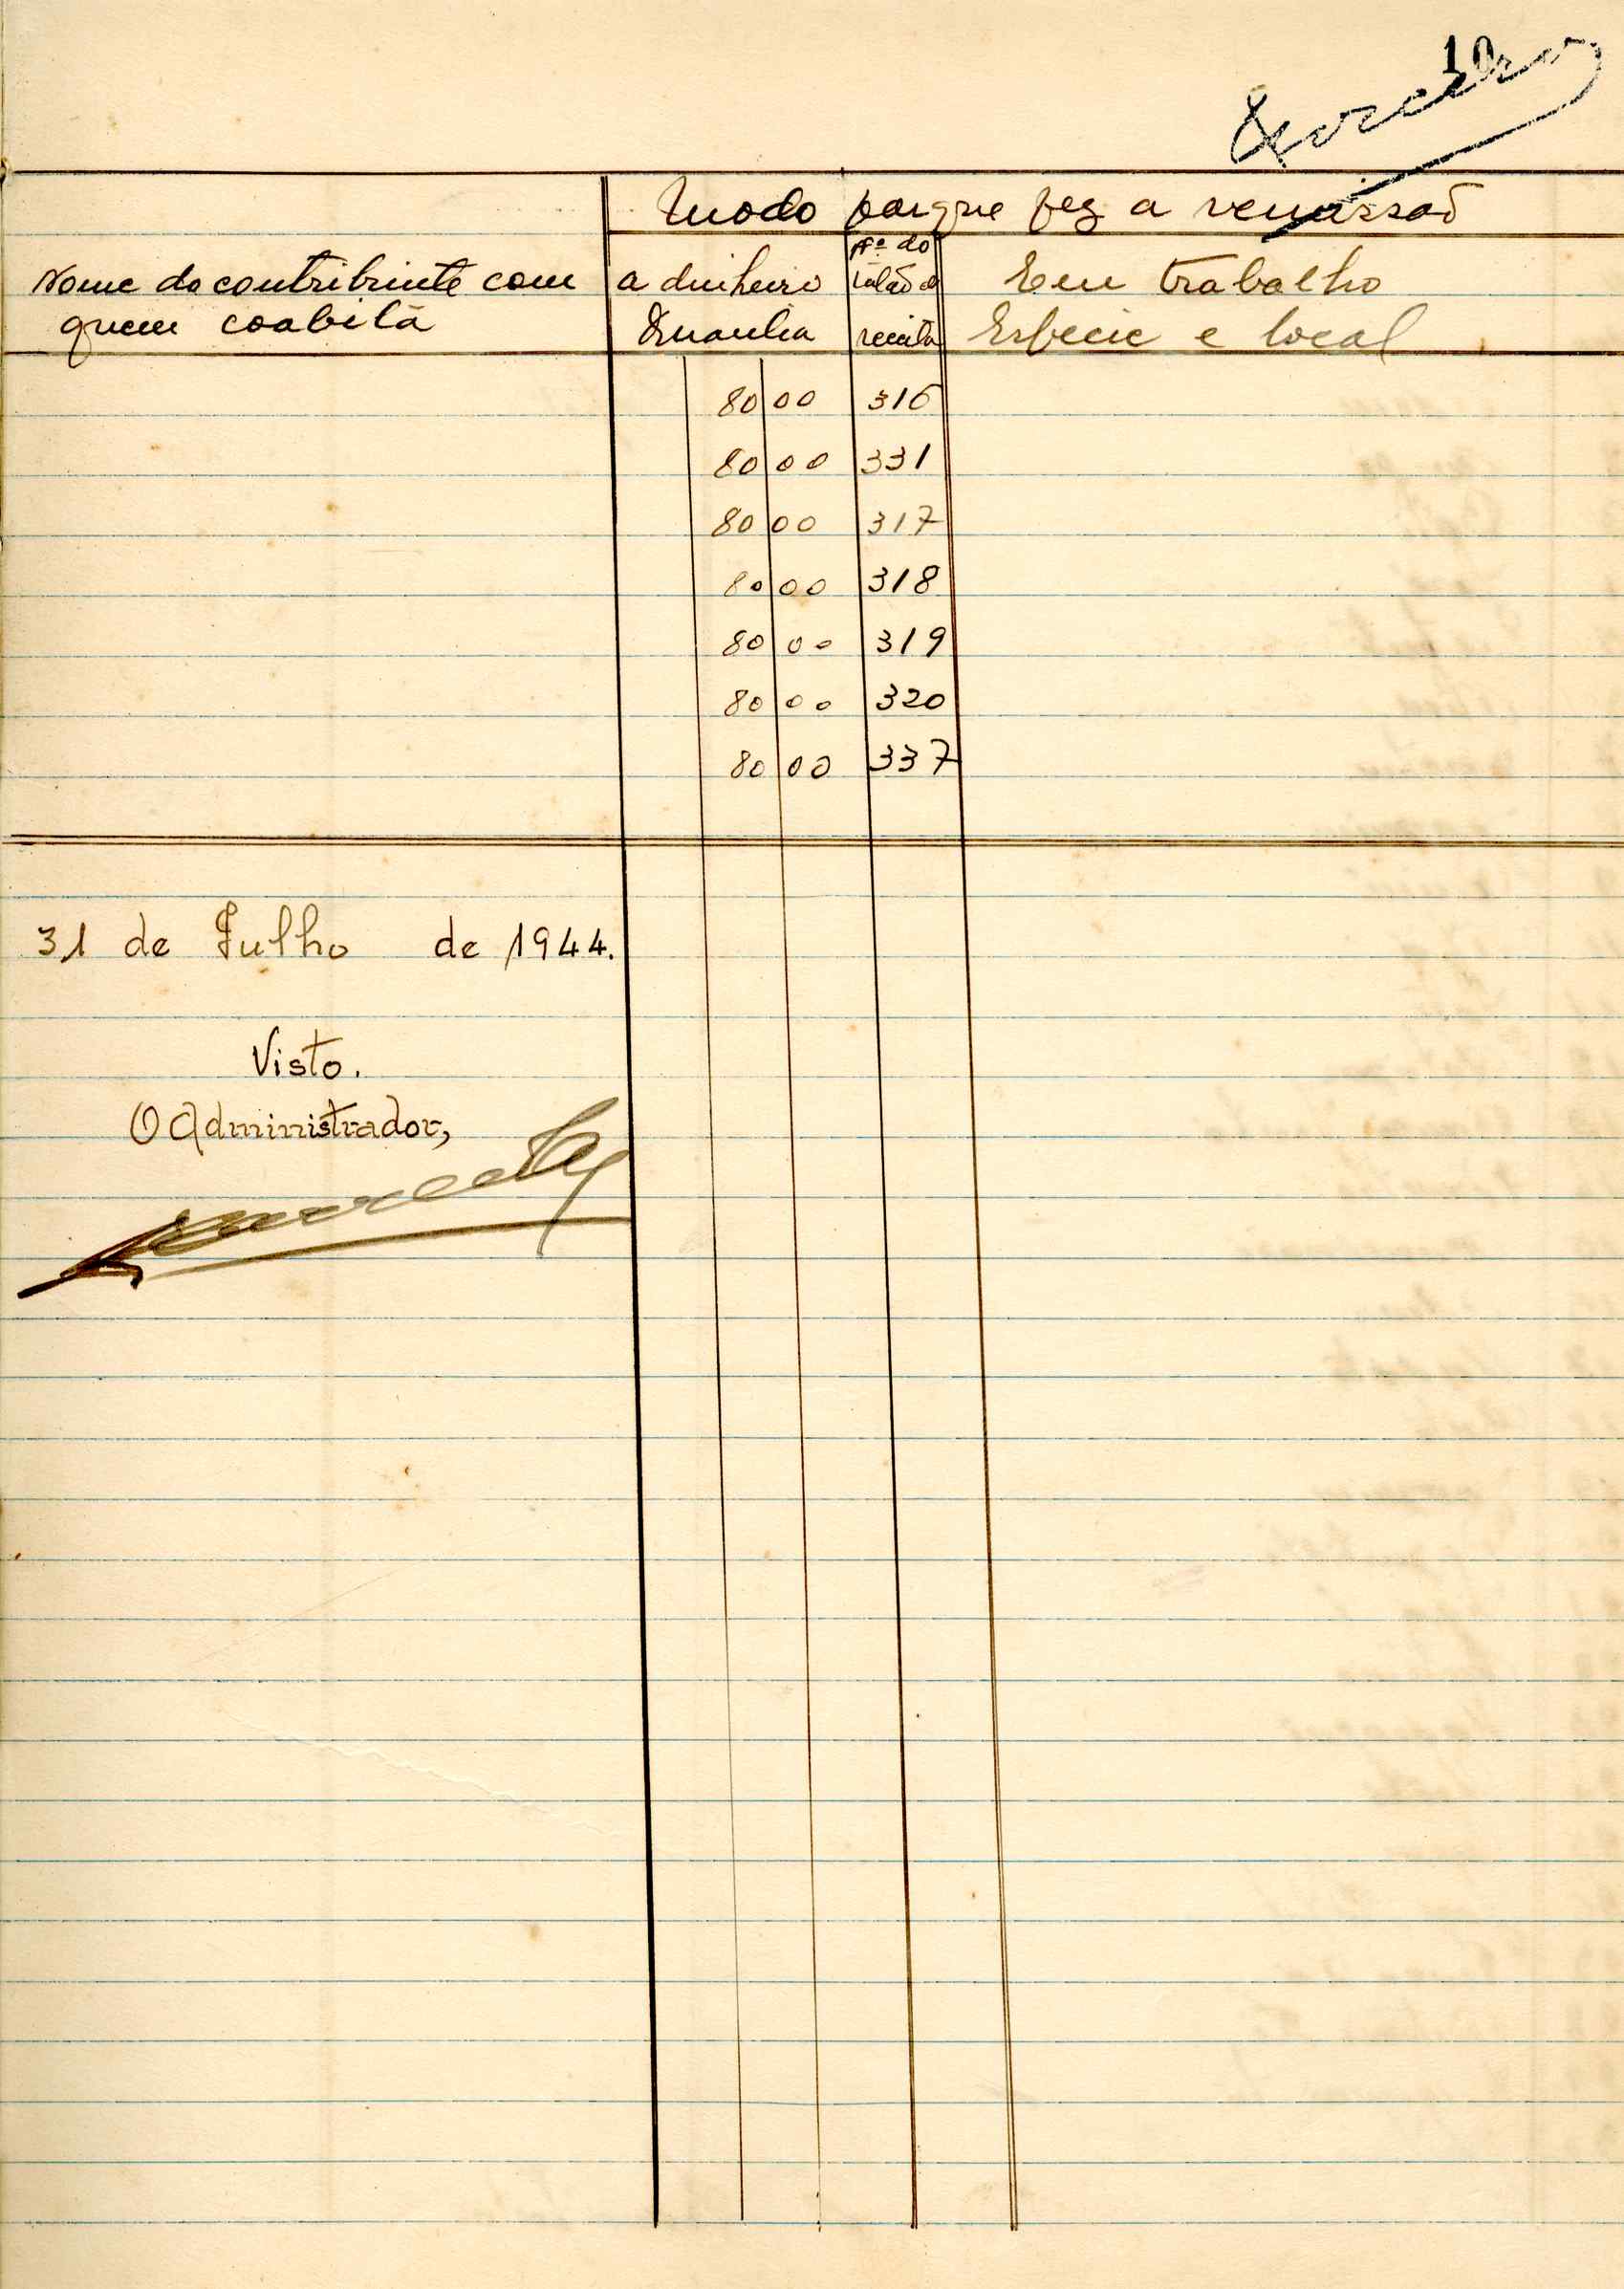 10
Modo porque fez a remissão
Nome do contribuinte com
quem coabita
a dinheiro
Quantia
Nº do
talão de
receita
Em trabalho
Espécie e local
80 00 316
80 00 331
80 00 317
80 00 318
80 00 319
80 00 320
80 00 337
31 de Julho de 1944.
Visto.
O Administrador,